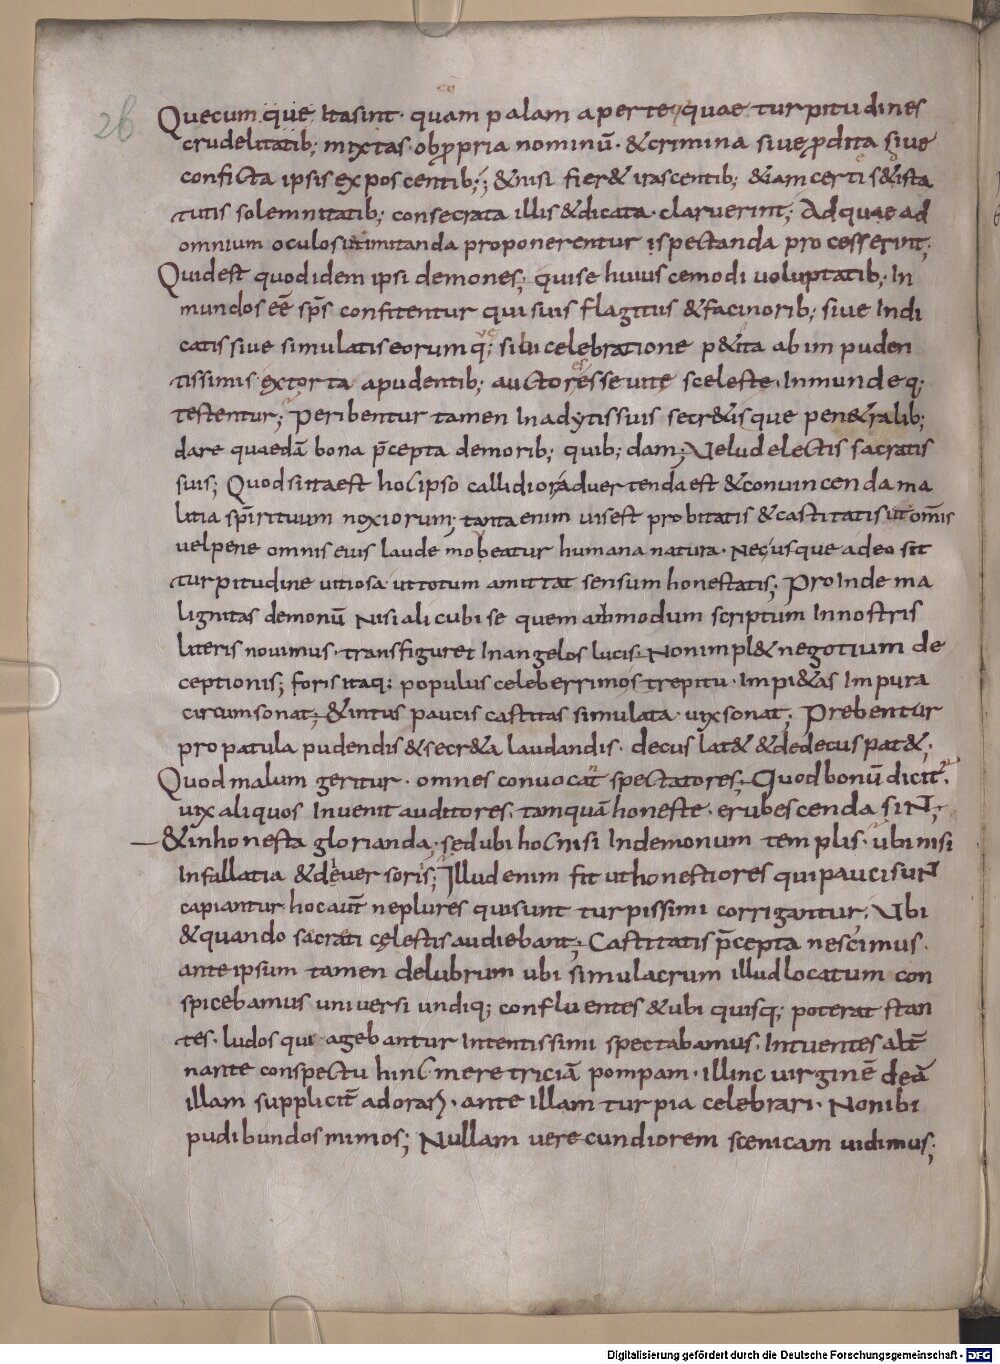 26
Quecum que itasint· quam palam aperte· quae turpitudines
crudelitatib; mixtas· obpropria nominū· & crimina sive prodita sive
conficta ipsis exposcentib;; & nisi fier& irascentib; &iam certis & ista
tutis solemnitatib; consecrata illis & dicata· claruerint; Adquae ad
omnium oculos utimitanda proponerentur ispectanda processerint;
Quidest quodidem ipsi demones; quise huius cemodi voluptatib; In
mundos eē sps̄ confitentur quisuis flagitiis & facinorib; sive Indi
catis sive simulatis eorumq; sibi celebratione p&ita abimpuden
tissimis· extorta apudentib; auctores se uite sceleste· Inmundeq;
testentur; Peribentur tamen Inadytissuis secr&isque pen&ralib;
dare quaedā bona p̄cepta demorib; quib; dam; Velud electis sacratis
suis; Quod sitaest hoc ipso callidior aduertenda est & conuincenda ma
litia spirituum noxiorum; tanta enim uis est probitatis & castitatis ut om̄is
uelpene omnis eius laude mobeatur humana natura· Necusque adeo sit
turpitudine uitiosa· ut totum amittat sensum honestatis; Pro Inde ma
lignitas demonū Nisi alicubi se quem admodum scriptum Innostris
literis nouimus· transfiguret Inangelos lucis· Nonimpl& negotium de
ceptionis; foris itaq; populus celeberrimo strepitu· Impi&as Impura
circumsonat; & intus paucis castitas simulata· uix sonat; Prebentur
propatula pudendis & secr&a laudandis· decus lat& & dedecus pat&;
Quod malum geritur· omnes convocat spectatores; Quod bonū dicit̄·
uix aliquos Inuenit auditores· tamquā honeste· erubescenda sint;
& inhonesta glorianda· sed ubi hoc nisi Indemonum templis· ubi nisi
Infallatia & deuersoris; Illud enim fit ut honestiores qui pauci sunt
capiantur hoc aūt ne plures qui sunt turpissimi corrigantur; Vbi
& quando sacrati cęlestis audiebant; Castitatis p̄cepta nescimus·
ante ipsum tamen delubrum ubi simulacrum illud locatum con
spicebamus universi undiq; confluentes & ubi quisq; poterat stan
tes· ludos qui agebantur Intentissimi spectabamus· Intuentes alt̄
nante conspectu hinc meretriciā pompam· illinc virginē deā
illam supplicit̄ adorari· ante illam turpia celebrari· Non ibi
pudibundos mimos; Nullam verecundiorem scenicam uidimus;
Digitalisierung gefördert durch die Deutsche Forschungsgemeinschaft - DFG